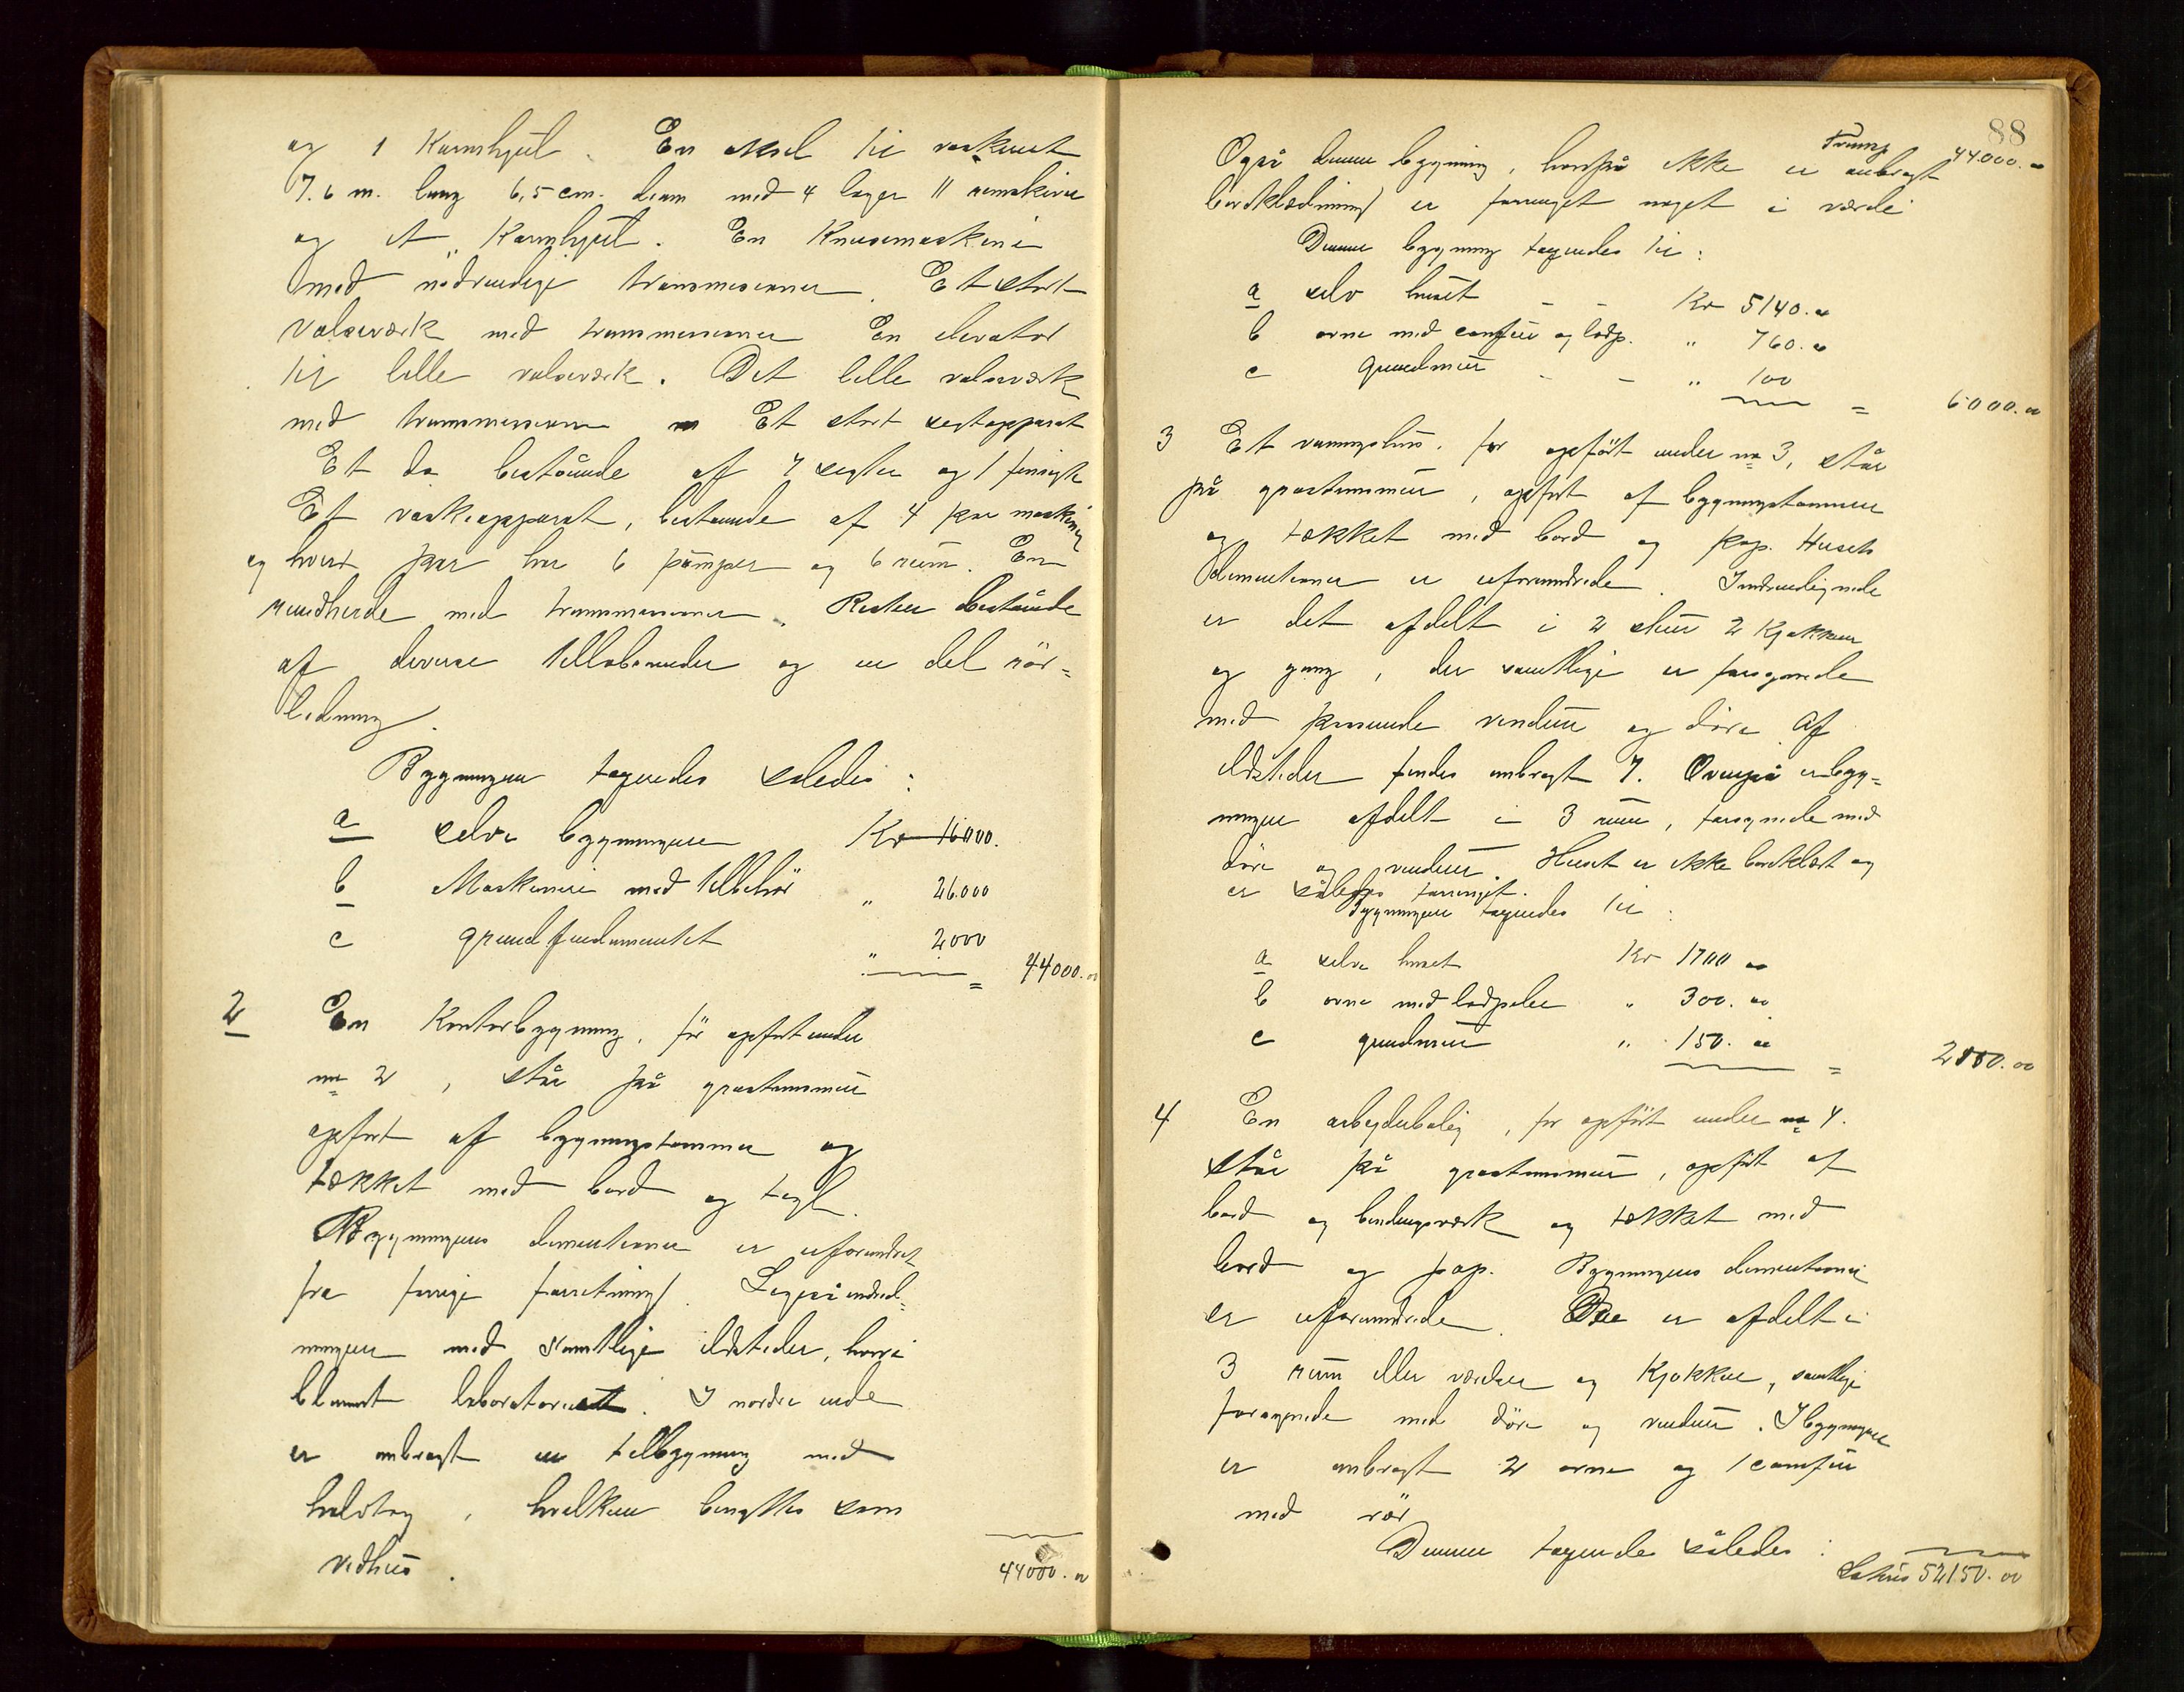 og 1 Kamhjul. En aksel til vaskeriet
7.6 m. lang 6,5 cm. diam med 4 lager 11 remskiver
og et Kamhjul. En Knusemaskine
med nödvendige transmisioner. Et stort
valseværk med transmisioner En elevator
til lille valseværk. Det lille valseværk
med transmisioner Et stort
Et do bestående af 4 og 1
Et vaskeapparat, bestående af 4 par maskiner
og hvert par har 6 pumper og 6 rum. En
rundherde med transmisioner. Resten bestående
af diverse og en del rör-
ledning.
Bygningen tageredes således:
a selve bygningen Kr 16000.
b Maskineri med tilbehör " 26.000
c grundfundamentet " 2000
= 44000.00
2 En Kontorbygning, för opfört under
no 2, står på gråstensmur
opfört af bygningstömmer og
tækket med bord og tagl.
Bygningens dimentioner er uforandret
fra forrige forretning. Ligeså indred-
ningen med samtlige ildsteder, hvori
blannt laboratoriet. I nordre ende
er anbragt en tilbygning med
halvtag, hvilken benyttes som
vedhus.
44000.00
88
44000.00
Også denne bygning, hvorpå ikke er anbragt
bordklædning er forringet noget i værdi
Denne bygning tageredes til:
a selv huset - - Kr 5140.00
b ovne med comfur og ladp. " 760.00
c grundmur - - " 100
= 6000.00
3 Et våningshus, før opfört under no 3, står
på gråstensmur, opfört af bygningstömmer
og tækket med bord og pap. Husets
dimentioner er uforandrede. Indvendig
er det afdelt i 2 stuer 2 Kjøkkener
og gang, der samtlige er forsynede
med passende vinduer og döre. Af
ildsteder findes anbragt 7. Ovenpå er byg-
ningen afdelt i 3 rum, forsynede med
döre og vinduer. Huset er ikke bordklædt og
er således forringet.
Bygningen tageredes til:
a selve huset Kr 1700 00
b ovne med ladpeler " 300.00
c grundmur " 150.00
= 2150.00
4 En arbejderbolig, før opfört under no 4.
står på gråstensmur, opfört af
bord og bindingsværk og tækket med
bord og pap. Bygningens dimentioner
er uforandrede. Den er afdelt i
3 rum eller værelser og Kjøkken, samtlige
forsynede med döre og vinduer. I bygningen
er anbragt 2 ovne og 1 comfur
med rör
Denne tageredes således:
Latus 52150.00